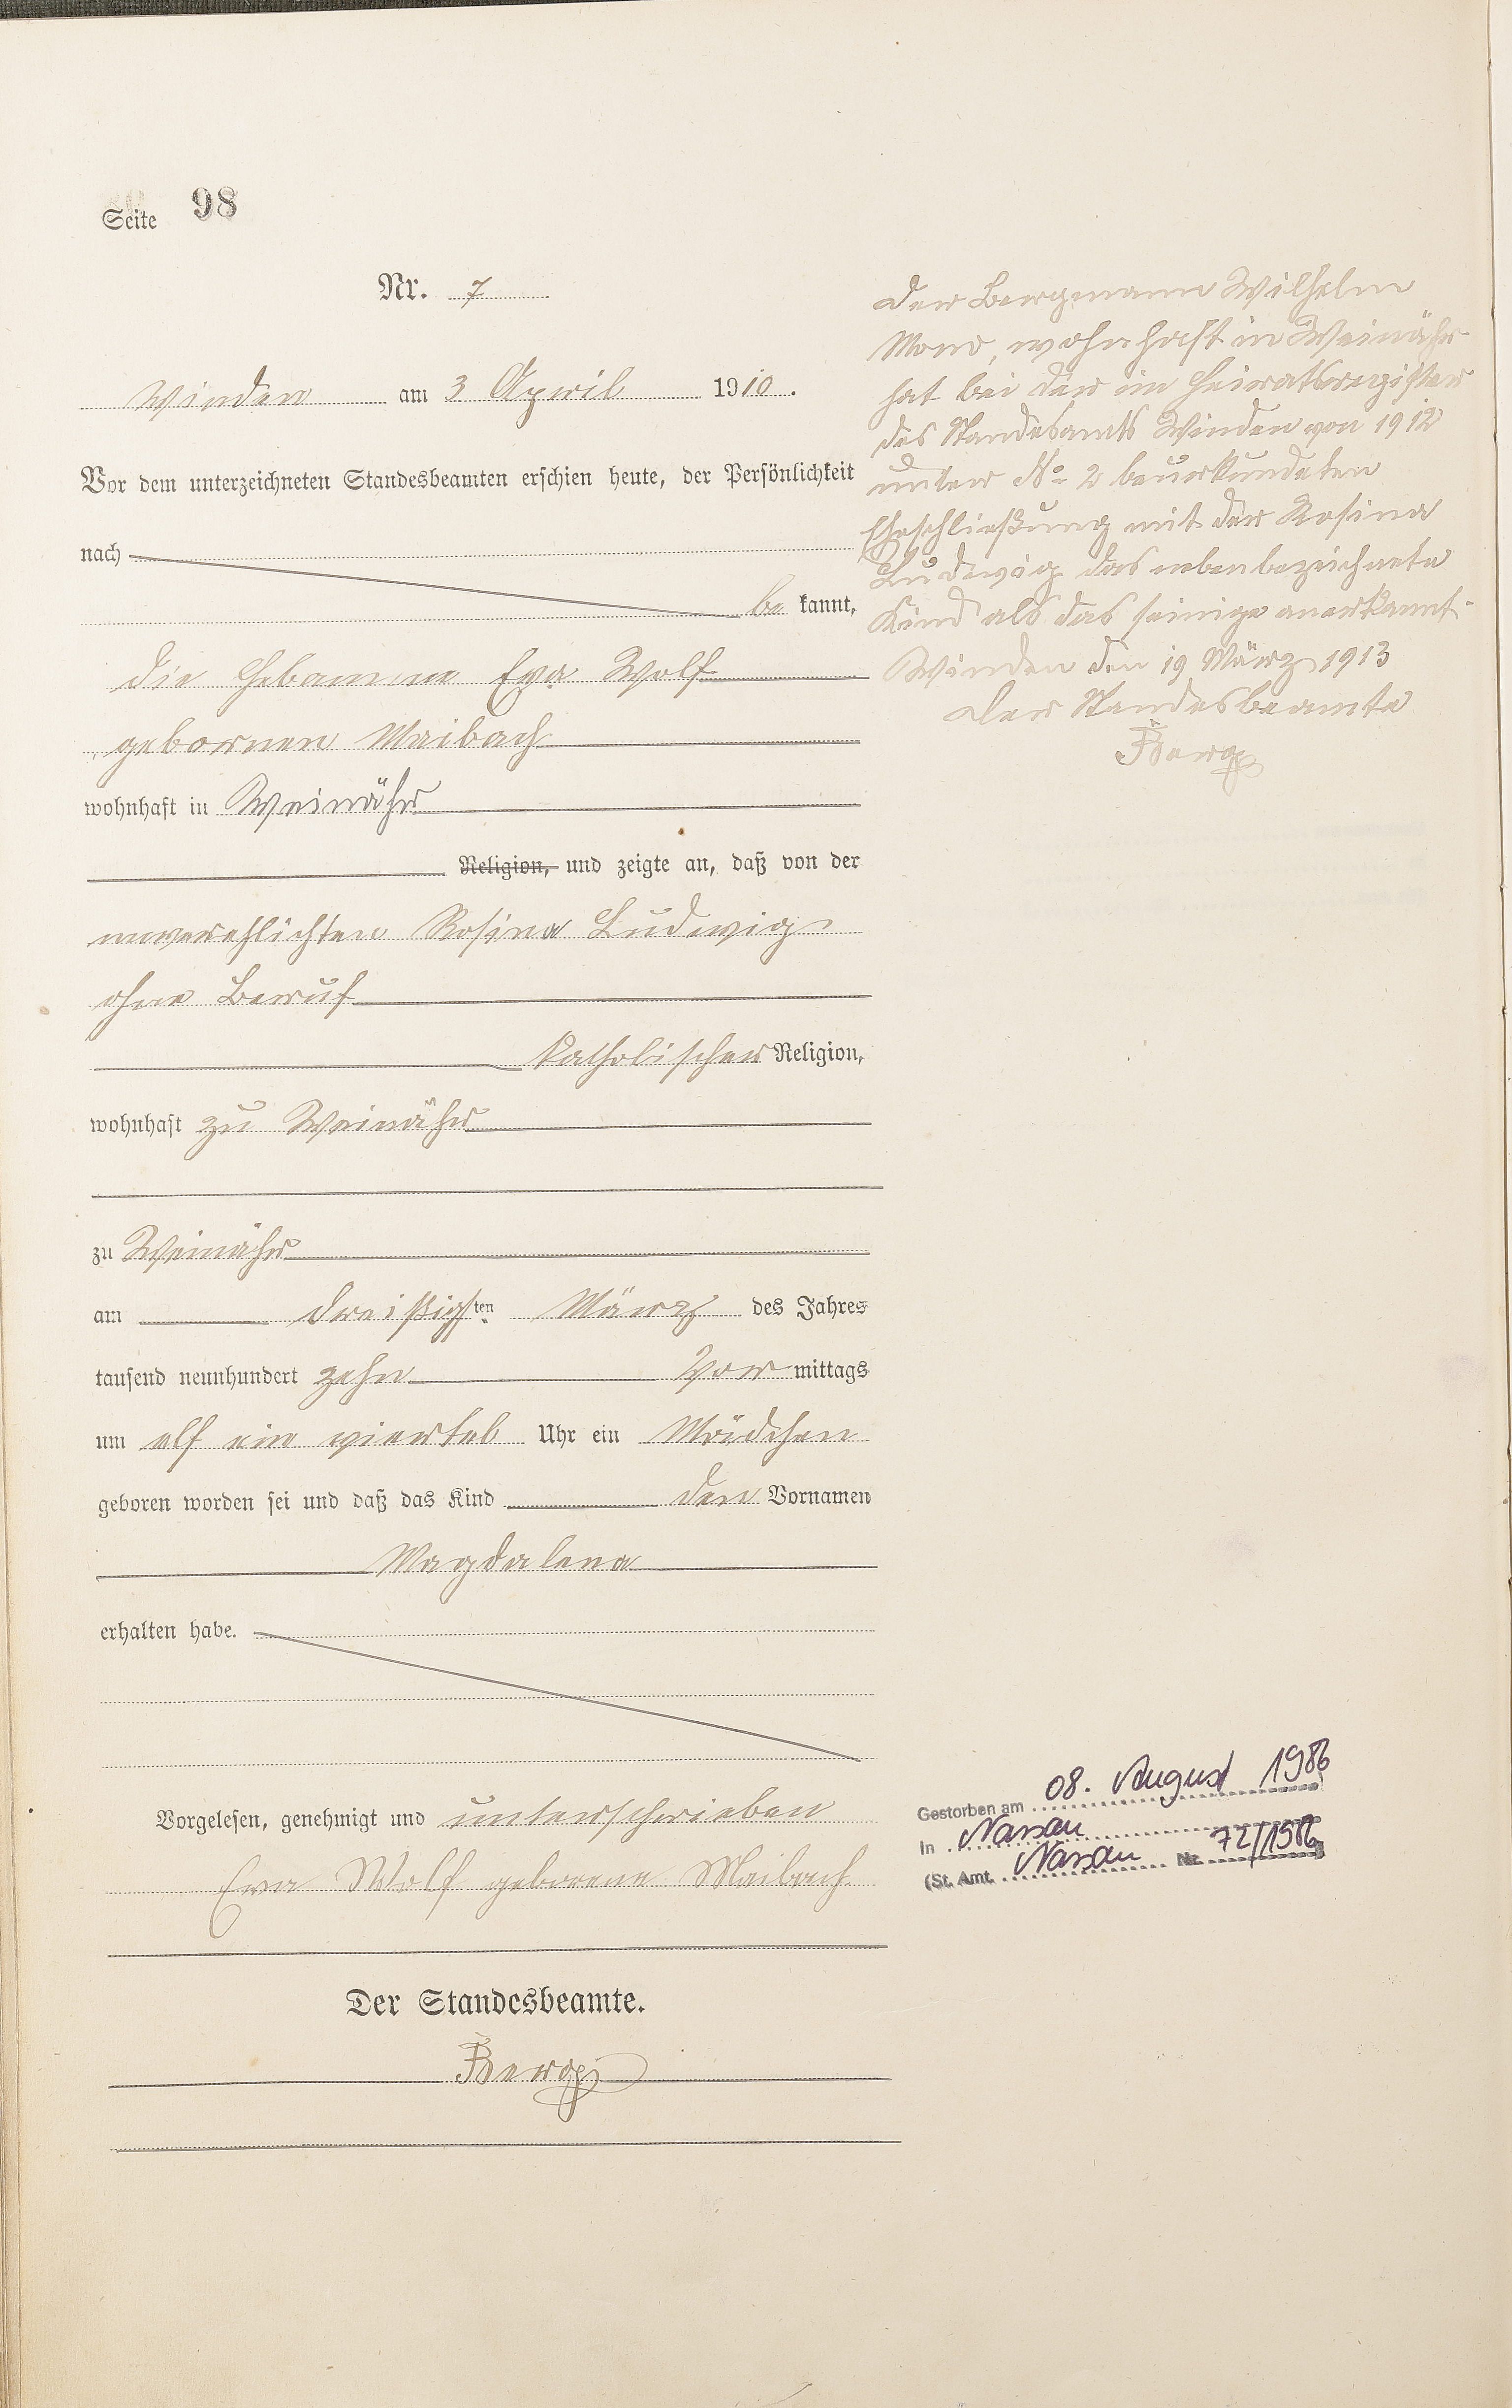 Seite 98
Nr. 7
Winden am 3 April 1910.
Vor dem unterzeichneten Standesbeamten erschien heute, der Persönlichkeit
nach
be kannt,
die Hebamme Eva Wolf
gebornen Maibach
wohnhaft in Weinähr
Religion, und zeigte an, daß von der
unverehlichten Rosina Ludwig
ohne Beruf
katholischer Religion,
wohnhaft zu Weinähr
zu Weinähr
am dreißigsten März des Jahres
tausend neunhundert zehn Vor mittags
um elf ein viertel Uhr ein Mädchen
geboren worden sei und daß das Kind den Vornamen
Magdalena
erhalten habe.
Vorgelesen, genehmigt und unterschrieben
Eva Wolf geborene Maibach
Der Standesbeamte.
Berg
Der Bergmann Wilhelm
wohnhaft in Weinähr
hat bei der im Heiratsregister
des Standesamts Winden von 1912
unter No 2 beurkundeten
Eheschließung mit der Rosina
Ludwig das nebenbezeichnete
Kind als das seinige anerkannt.
Winden den 19 März 1913
Der Standesbeamte
Berg
Gestorben am 08. August 1986
In Nassau
(St. Amt. Nassau Nr. 72/1986